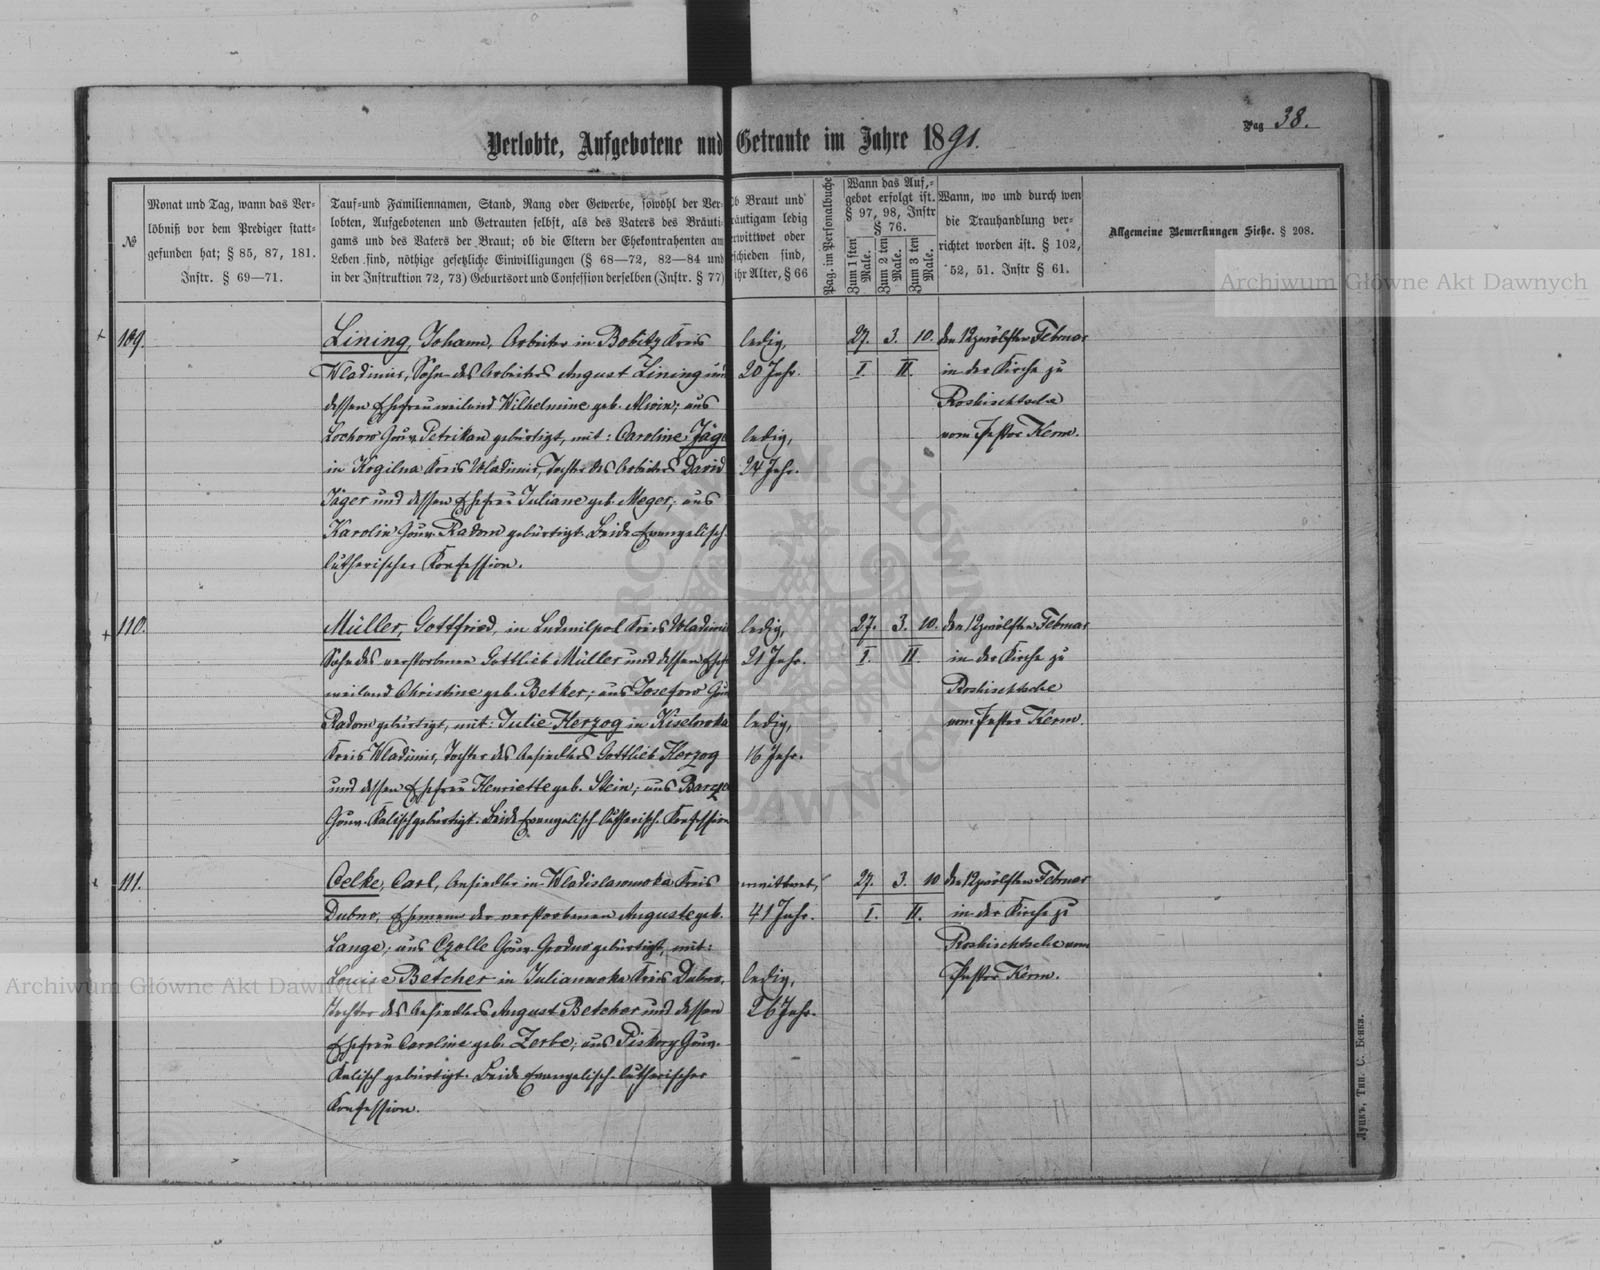 Pag 38.
Verlobte, Aufgebotene und Getraute im Jahre 1891.
№
Monat und Tag, wann das Ver-
löbniß vor dem Prediger statt-
gefunden hat; § 85, 87, 181.
Instr. § 69—71.
Tauf- und Familiennamen, Stand, Rang oder Gewerbe, sowohl der Ver-
lobten, Aufgebotenen und Getrauten selbst, als des Vaters des Bräuti-
gams und des Vaters der Braut; ob die Eltern der Ehekontrahenten am
Leben sind, nöthige gesetzliche Einwilligungen (§ 68—72, 82—84 und
in der Instruktion 72, 73) Geburtsort und Confession derselben (Instr. § 77)
Ob Braut und
räutigam ledig
erwittwet oder
schieden sind,
ihr Alter, § 66
Pag. im Personalbuche
Wann das Auf-
gebot erfolgt ist.
§ 97, 98, Instr
§ 76.
Zum 1 sten Male.
Zum 2 ten Male.
Zum 3 ten Male.
Wann, wo und durch wen
die Trauhandlung ver-
richtet worden ist. § 102,
52, 51. Instr § 61.
Allgemeine Bemerkungen Siehe. § 208.
Archiwum Główne Akt Dawnych
109.
Lining, Johann, Arbeiter in Bobitz Kreis
Wladimir, Sohn des Arbeiters August Lining und
dessen Ehefrau weiland Wilhelmine geb. Alwin; aus
Lochow Gouv. Petrikau gebürtigt, mit: Caroline Jäge
in Kogilna Kreis Wladimir, Tochter des Arbeiters David
Jäger und dessen Ehefrau Juliane geb. Meger; aus
Karolin Gouv. Radom gebürtigt. Beide Evangelisch-
lutherischer Konfession.
ledig,
20 Jahr.
ledig,
24 Jahr.
27. 3. 10.
I. II.
den 12 zwölften Februar
in der Kirche zu
Roshischtsche
vom Pastor Kerm.
110.
Müller, Gottfried, in Ludmilpol Kreis Wladimir
Sohn des verstorbenen Gottlieb Müller und dessen Ehefr
weiland Christine geb. Betker; aus Josefow Gouv
Radom gebürtigt, mit: Julie Herzog in Kiselowka
Kreis Wladimir, Tochter des Ansiedlers Gottlieb Herzog
und dessen Ehefrau Henriette geb. Stein; aus
Gouv. Kalisch gebürtigt. Beide Evangelisch-lutherisch. Konfession
ledig,
21 Jahr.
ledig,
16 Jahr.
27. 3. 10.
I. II.
den 12 zwölften Februar
in der Kirche zu
Roshischtsche
vom Pastor Kerm.
111.
Oelke, Carl, Ansiedler in Wladislawowka Kreis
Dubno, Ehemann der verstorbenen Auguste geb.
Lange; aus Czolle Gouv. Grodno gebürtigt, mit:
Louise Betcher in Julianowka Kreis Dubno,
Tochter des Ansiedlers August Betcher und dessen
Ehefrau Caroline geb. Zerbe; aus Piskory Gouv.
Kalisch gebürtigt. Beide Evangelisch-lutherischer
Konfession.
verwittwet,
41 Jahr.
ledig,
26 Jahr.
27. 3. 10
I. II.
den 12 zwölften Februar
in der Kirche zu
Roshischtsche vom
Pastor Kerm.
Archiwum Główne Akt Dawnych
Луцкъ, Тип. С. Бенка.